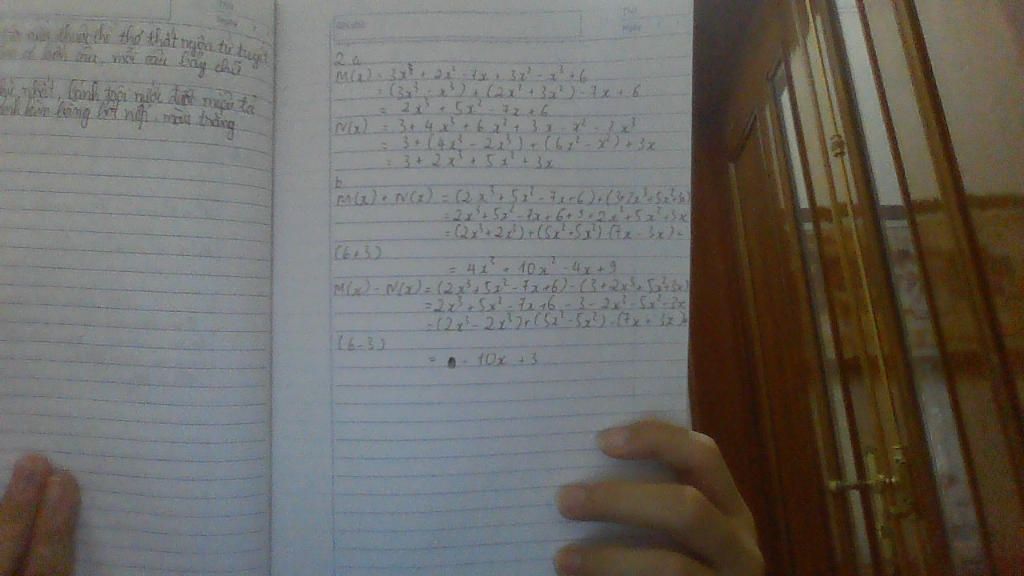 thể thơ thất ngôn tứ tuyệt
mỗi câu bảy chữ
nhất, bánh trôi nước
bằng bột nếp, màu trắng
Thứ
Ngày
2 a
M(x) = 3x³ + 2x² - 7x + 3x² - x³ + 6
= (3x³ - x³) + (2x² + 3x²) - 7x + 6
= 2x³ + 5x² - 7x + 6
N(x) = 3 + 4x³ + 6x² + 3x - x² - 2x³
= 3 + (4x³ - 2x³) + (6x² - x²) + 3x
= 3 + 2x³ + 5x² + 3x
b
M(x) + N(x) = (2x³ + 5x² - 7x + 6) + (3+2x³+5x²+3x)
= 2x³ + 5x² - 7x + 6 + 3 + 2x³ + 5x² + 3x
= (2x³ + 2x³) + (5x² + 5x²) (7x - 3x) +
(6+3)
= 4x³ + 10x² - 4x + 9
M(x) - N(x) = (2x³ + 5x² - 7x + 6) - (3 + 2x³ + 5x² + 3x)
= 2x³ + 5x² - 7x + 6 - 3 - 2x³ - 5x² - 3x
= (2x³ - 2x³) + (5x² - 5x²) - (7x + 3x) +
(6-3)
= - 10x + 3